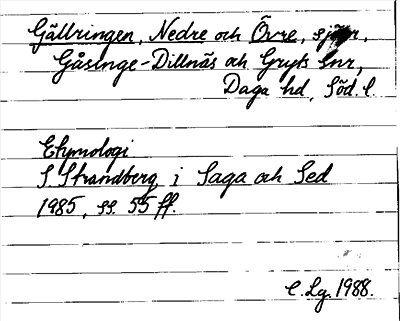 Gällringen, Nedre och Övre, sjöar,
Gåsinge-Dillnäs och Gryts snr,
Daga hd, Söd. l.
Etymologi
S Strandberg i Saga och Sed
1985, ss. 55 ff.
C. Lg. 1988.